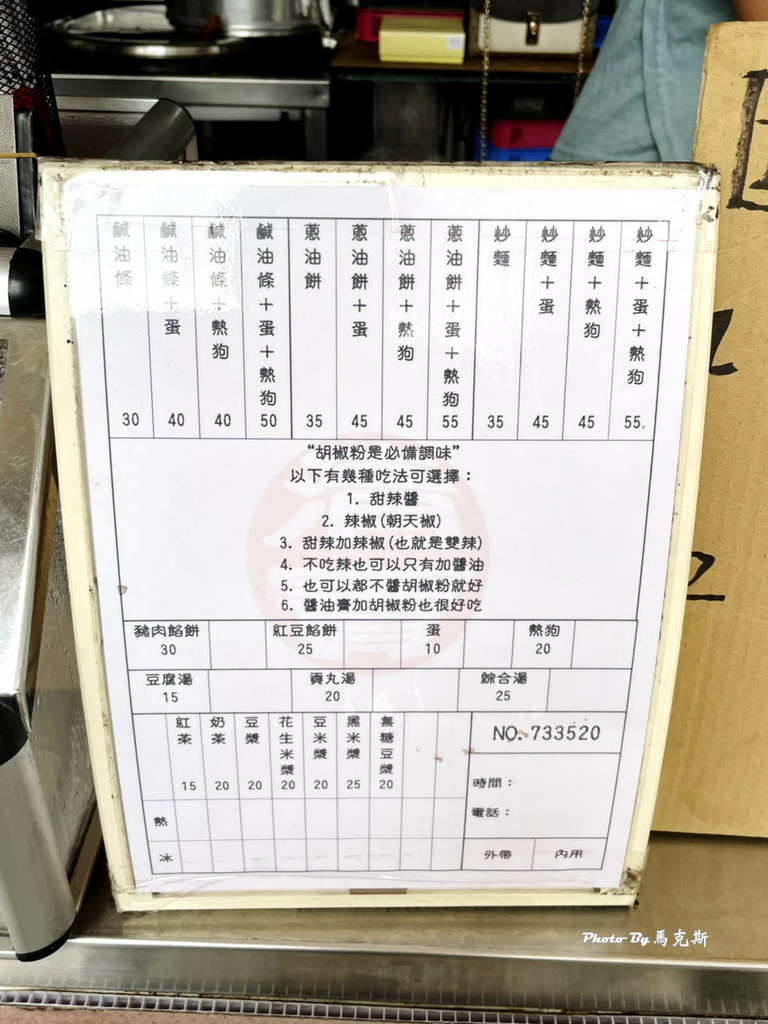 鹹油條 30
鹹油條+蛋 40
鹹油條+熱狗 40
鹹油條+蛋+熱狗 50
蔥油餅 35
蔥油餅+蛋 45
蔥油餅+熱狗 45
蔥油餅+蛋+熱狗 55
炒麵 35
炒麵+蛋 45
炒麵+熱狗 45
炒麵+蛋+熱狗 55
“胡椒粉是必備調味”
以下有幾種吃法可選擇：
1. 甜辣醬
2. 辣椒(朝天椒)
3. 甜辣加辣椒(也就是雙辣)
4. 不吃辣也可以只有加醬油
5. 也可以都不醬胡椒粉就好
6. 醬油膏加胡椒粉也很好吃
豬肉餡餅 30
紅豆餡餅 25
蛋 10
熱狗 20
豆腐湯 15
貢丸湯 20
綜合湯 25
紅茶 15
奶茶 20
豆漿 20
花生米漿 20
豆米漿 20
黑米漿 25
無糖豆漿 20
熱
冰
NO. 733520
時間：
電話：
外帶
內用
Photo By 馬克斯